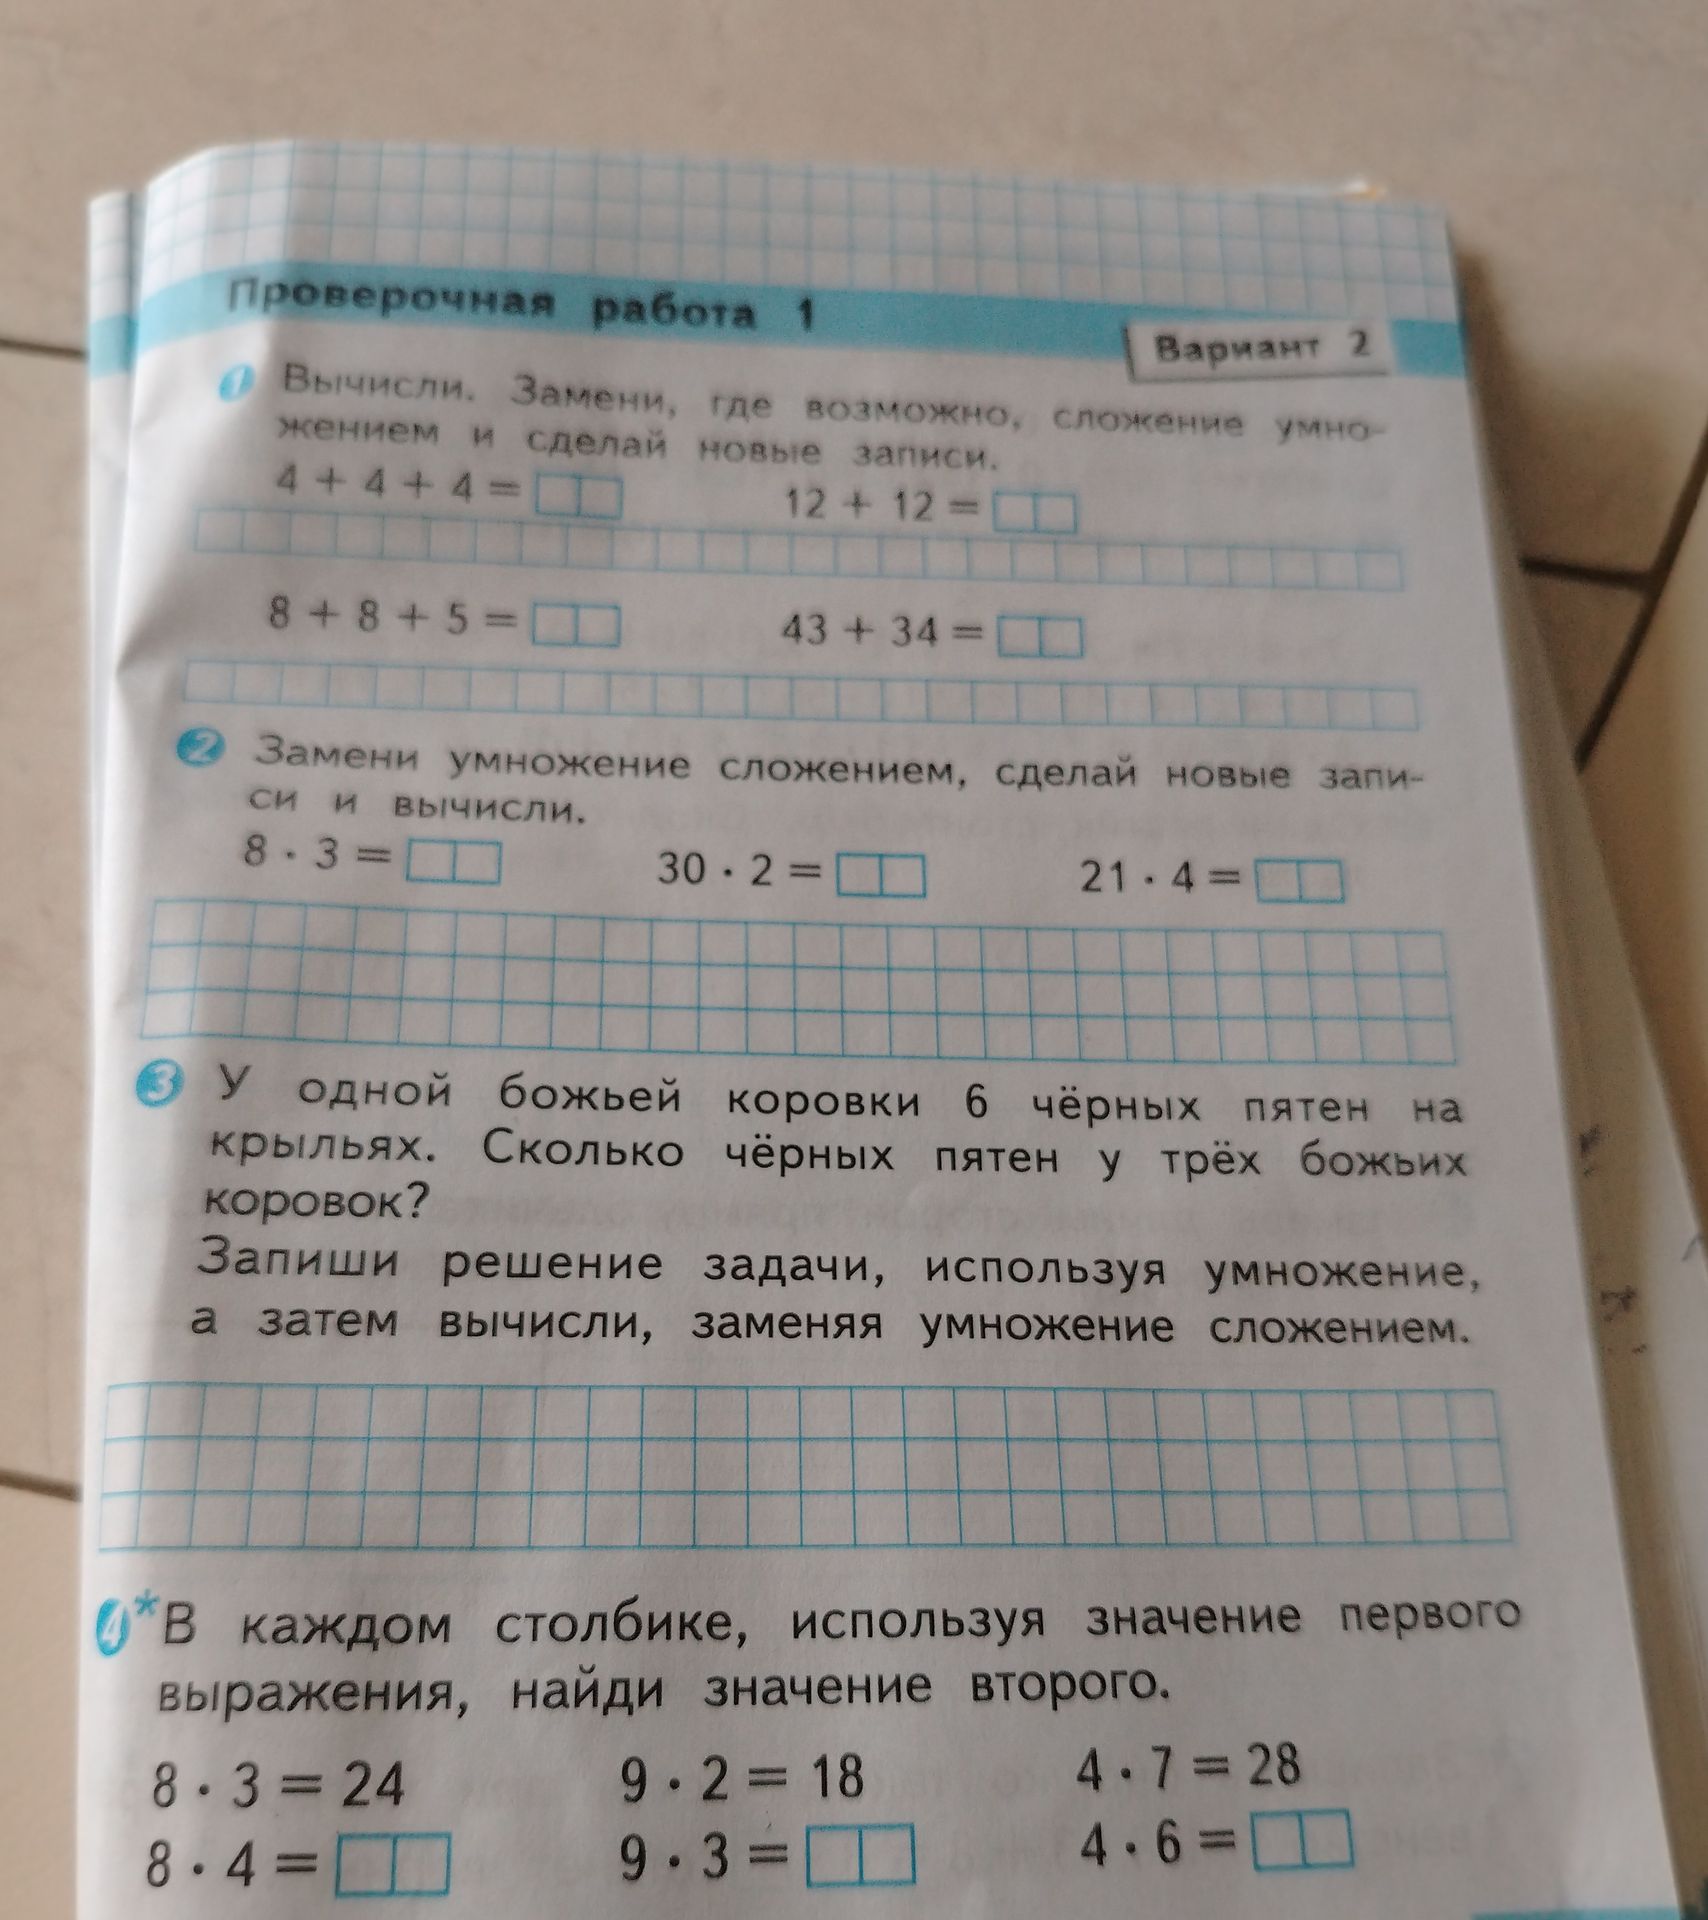 Проверочная работа 1
Вариант 2
1 Вычисли. Замени, где возможно, сложение умно-
жением и сделай новые записи.
4 + 4 + 4 = 12 + 12 =
8 + 8 + 5 = 43 + 34 =
2 Замени умножение сложением, сделай новые запи-
си и вычисли.
8 · 3 = 30 · 2 = 21 · 4 =
3 У одной божьей коровки 6 чёрных пятен на
крыльях. Сколько чёрных пятен у трёх божьих
коровок?
Запиши решение задачи, используя умножение,
а затем вычисли, заменяя умножение сложением.
4* В каждом столбике, используя значение первого
выражения, найди значение второго.
8 · 3 = 24 9 · 2 = 18 4 · 7 = 28
8 · 4 = 9 · 3 = 4 · 6 =